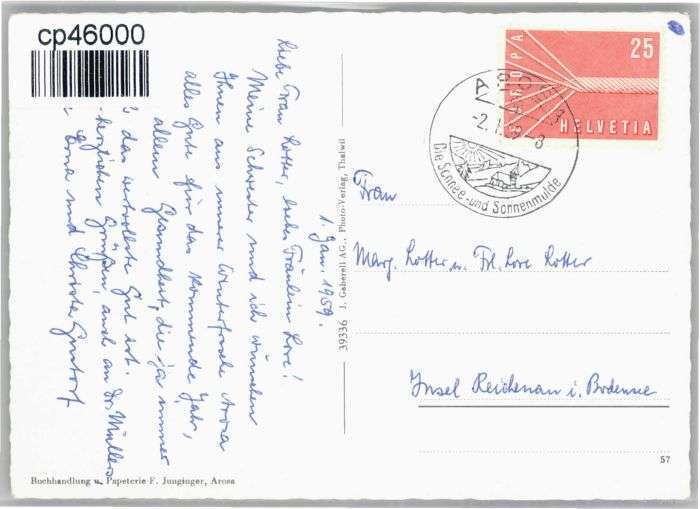 cp46000
1. Jan. 1959.
Liebe Frau Lotter, liebes Fräulein Lore!
Meine Schwester und ich wünschen
Ihnen aus unserer Winterfrische Arosa
alles Gute für das kommende Jahr,
allem Gesundheit, die ja immer
das wertvollste Gut ist.
herzlichen Grüßen, auch an Dr. Müllers
Erna und Christa
39336 J. Gaberell AG., Photo-Verlag, Thalwil
EUROPA
25
HELVETIA
AROSA
-2.1.59-8
Die Schnee- und Sonnenmulde
Frau
Marg. Lotter u. Frl. Lore Lotter
Insel Reichenau i. Bodensee
57
Buchhandlung u. Papeterie F. Junginger, Arosa